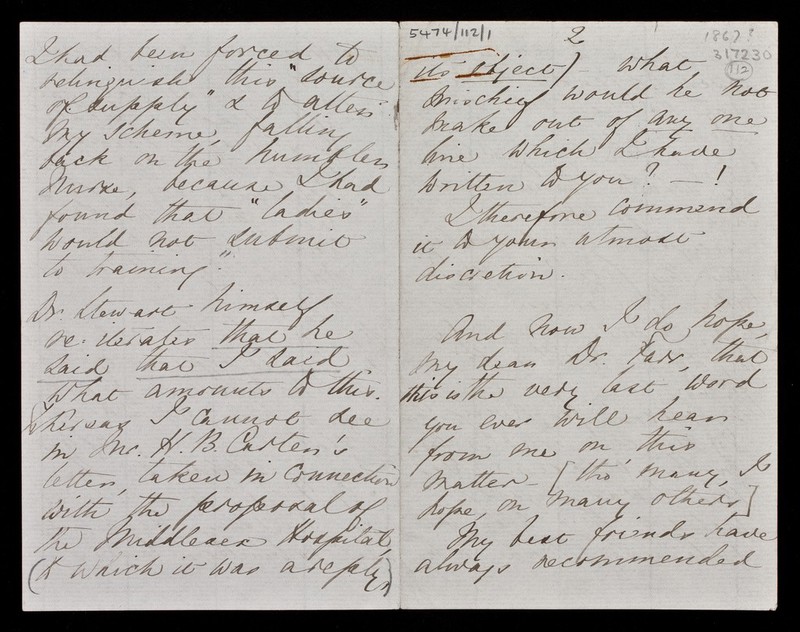 I had been forced to
relinquish this "source
of supply" & to alter
my scheme, falling
back on the humbler
Nurse, because I had
found that "ladies"
would not submit
to training".
Dr. Stewart himself
re-iterates that he
said that I said
what amounts to this.
Whereas I cannot see
in Mr. H. B. Carter's
letter, taken in connection
with the proposal of
the Middlesex Hospital,
(to which it was a reply)
5474/112/1
2
186??
317230
(112)
its object) - what
mischief would he not
make out of any one
line which I have
written to you? - !
I therefore commend
it to your utmost
discretion.
And now I do hope,
my dear Dr. Farr, that
this is the very last word
you ever will hear
from me on this
matter - [tho' many, I
hope, on many others]
My best friends have
always recommended